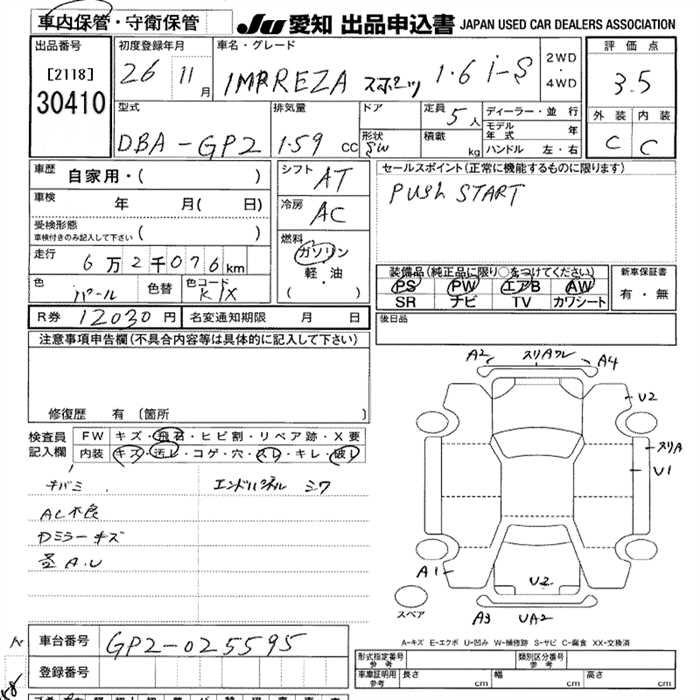 車内保管・守衛保管
JU 愛知 出品申込書 JAPAN USED CAR DEALERS ASSOCIATION
出品番号
[2118]
30410
初度登録年月
26 11月
車名・グレード
IMPREZA スポーツ 1.6 i-S
2WD
4WD
評価点
3.5
型式
DBA-GP2
排気量
1.59 cc
ドア
形状
SW
定員
5人
積載
kg
ディーラー・並行
モデル年式 年
ハンドル 左・右
外装 内装
C C
車歴
自家用・( )
シフト
AT
セールスポイント(正常に機能するものに限ります)
PUSH START
車検
年 月( 日)
冷房
AC
受検形態
車検付きのみ記入して下さい ( )
燃料
ガソリン
軽・油
( )
走行
6万2千076km
装備品(純正品に限り○をつけてください)
PS PW エアB AW
SR ナビ TV カワシート
新車保証書
有・無
色
パール
色替
色コード
K1X
R券 12030円
名変通知期限 月 日
後日品
注意事項申告欄(不具合内容等は具体的に記入して下さい)
修復歴 有 (箇所 )
検査員
記入欄
FW キズ・飛石・ヒビ割・リペア跡・X要
内装 キズ・汚レ・コゲ・穴・スレ・キレ・破レ
エンドパネル シワ
AC不良
Dミラーキズ
A.U
A2 スリAワレ A4
U2
スリA
U1
A1
U2
A3 UA2
スペア
A-キズ E-エクボ U-凹み W-補修跡 S-サビ C-腐食 XX-交換済
車台番号
GP2-025595
登録番号
形式指定番号
参考
類別区分番号
参考
車庫証明用
参考
長さ cm
幅 cm
高さ cm